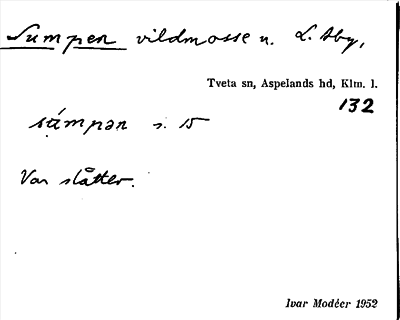 Sumpen vildmosse n. L. Aby,
Tveta sn, Aspelands hd, Klm. l.
132
sámpən s. 15
Var slåtter.
Ivar Modéer 1952